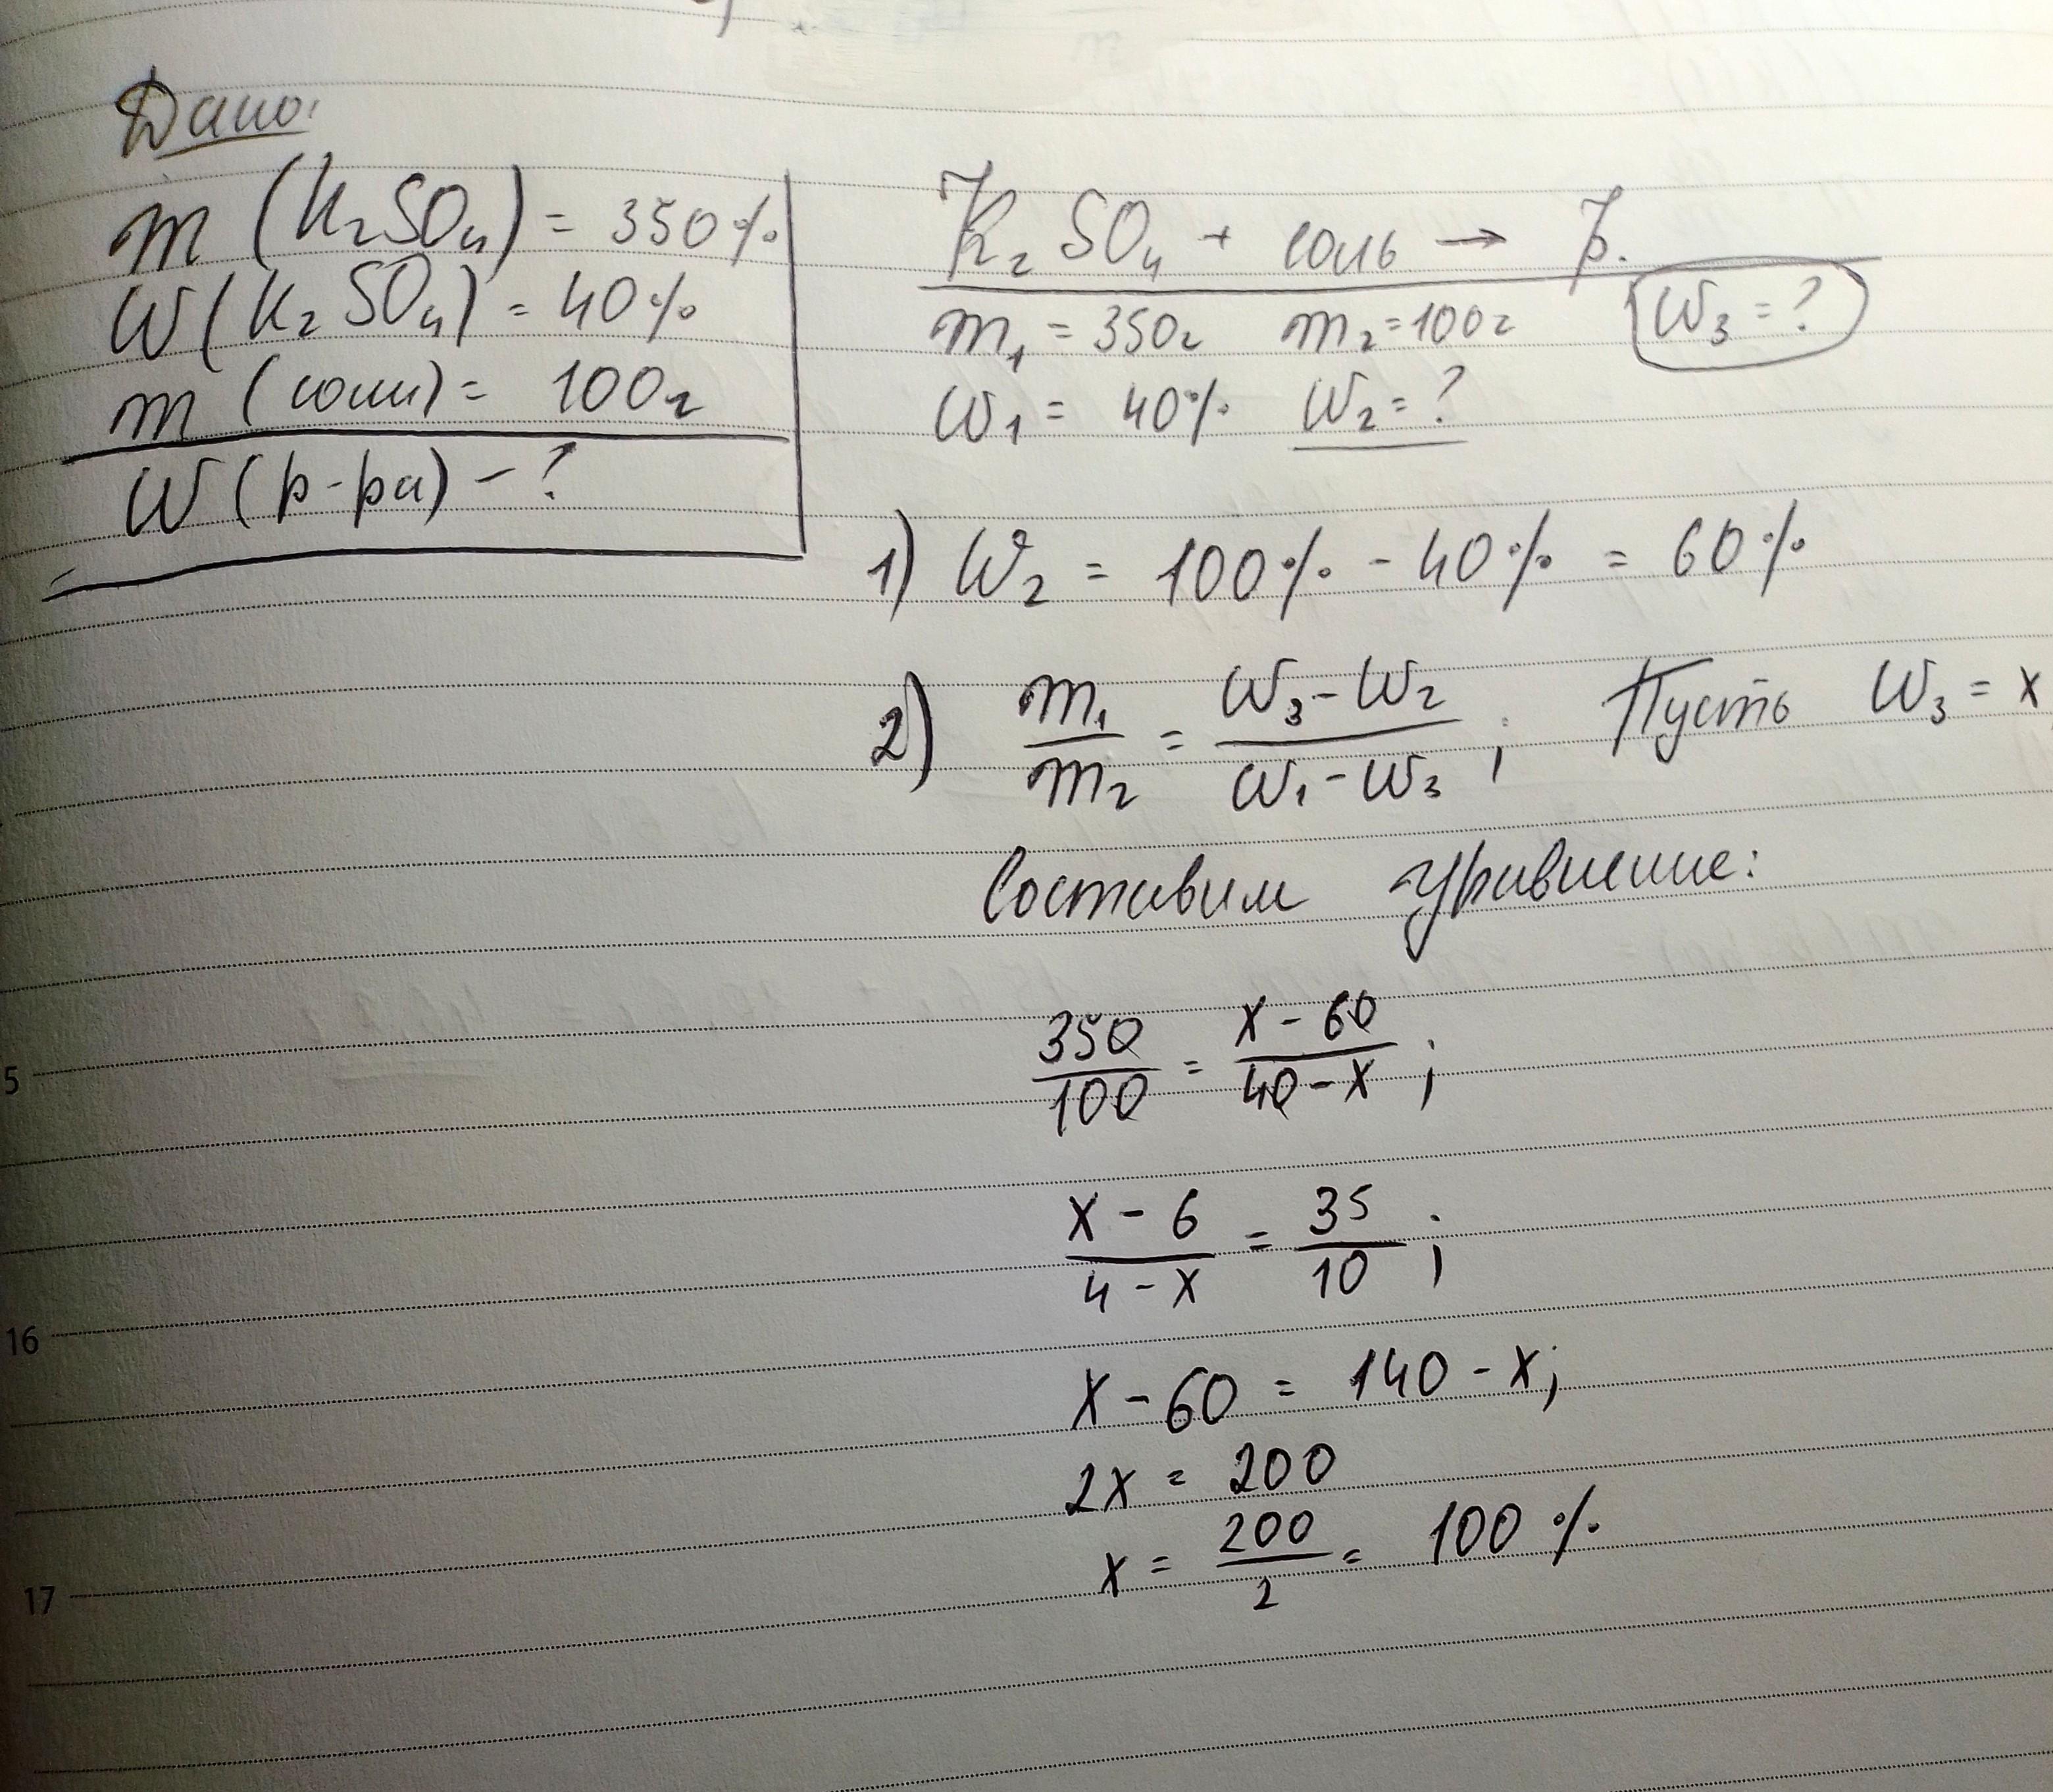 Дано:
m (K₂SO₄) = 350%
W(K₂SO₄) = 40%
m (соли) = 100г
W (р-ра) - ?
K₂SO₄ + соль → р.
m₁ = 350г m₂ = 100г W₃ = ?
W₁ = 40% W₂ = ?
1) W₂ = 100% - 40% = 60%
2) m₁/m₂ = W₃ - W₂/W₁ - W₃ ; Пусть W₃ = x
Составим уравнение:
350/100 = x - 60/40 - x ;
x - 6/4 - x = 35/10 ;
x - 60 = 140 - x;
2x = 200
x = 200/2 = 100%
5
16
17